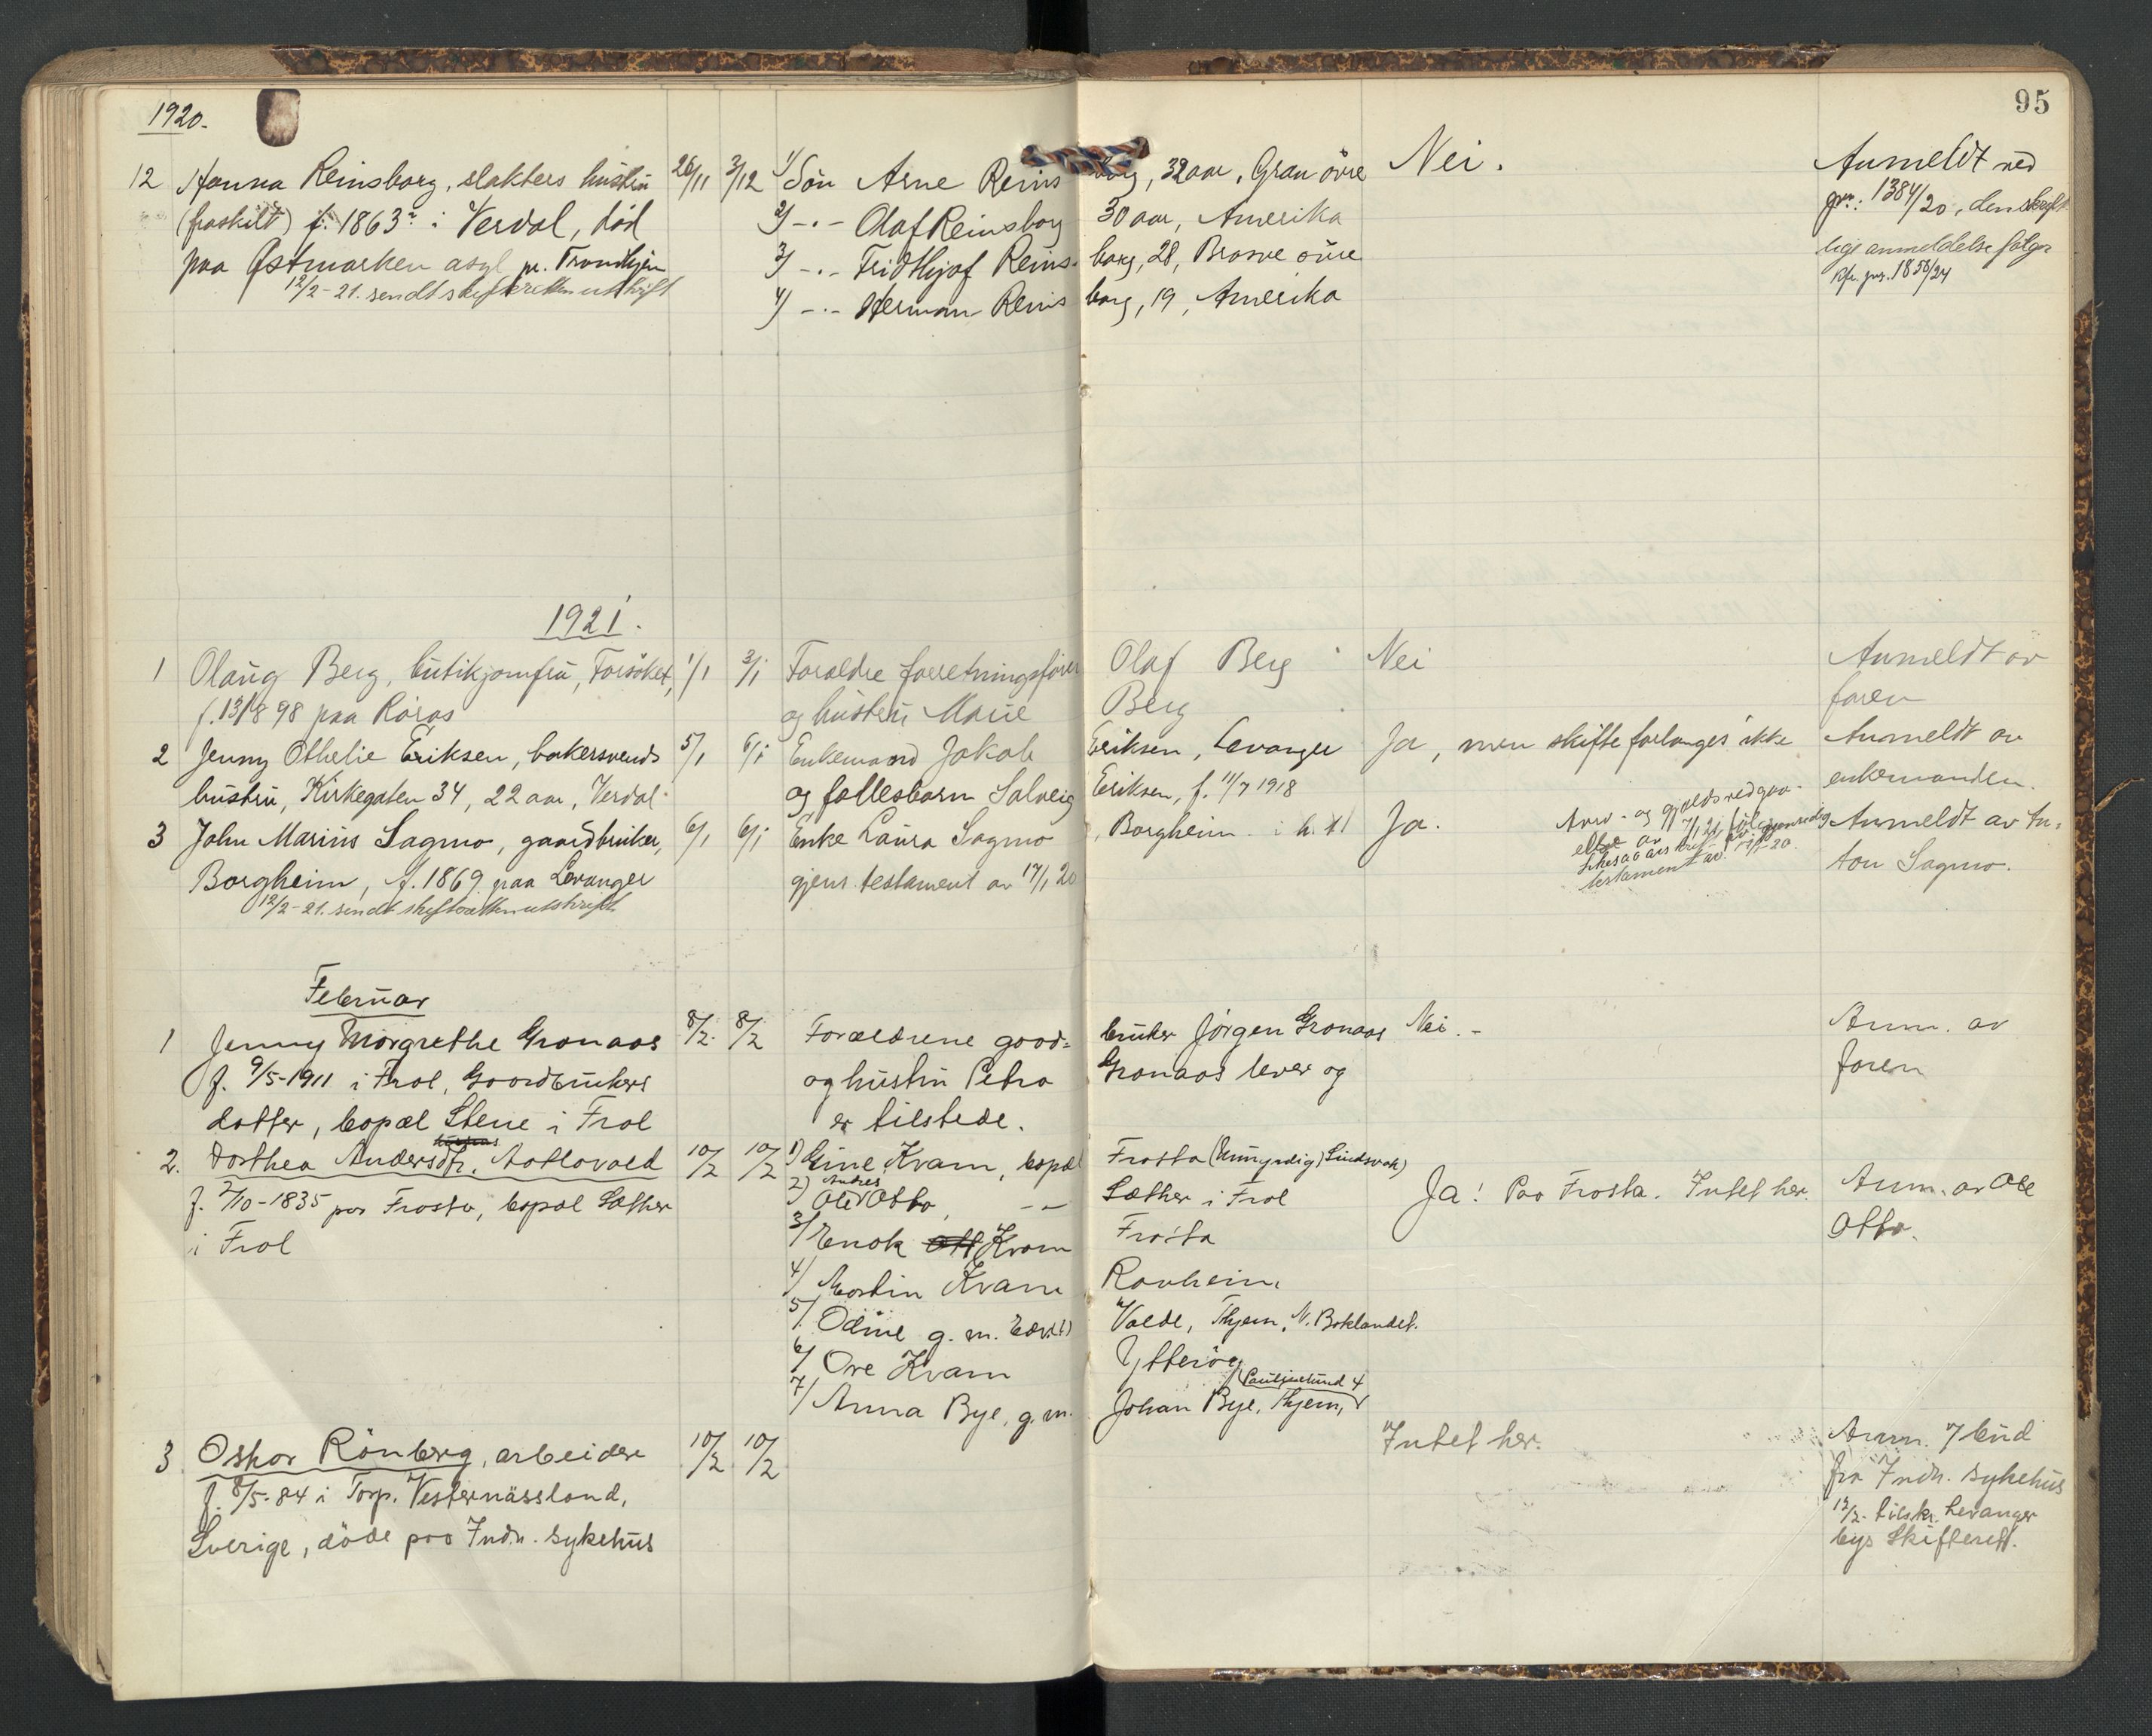 1920.
95
12 Hanna Reinsborg, slakters hustru 26/11 3/12 1/ Søn Arne Reinsborg, 32 aar, Gran övre Nei. Anmeldt ved
(fraskilt) f. 1863 i Verdal, död 2/ -.- Olaf Reinsborg 30 aar, Amerika jnr.: 1384/20, den skrift-
paa Østmarken asyl pr. Trondhjem 3/ -.- Fridthjof Reinsborg, 28, övre lige anmeldelse følger
12/2-21. sendt skifteretten utskrift 4/ -.- Herman Reinsborg, 19, Amerika Kfr. jnr. 1858/24
1921.
1 Olaug Berg, butikjomfru, Forsöket, 1/1 3/1 Forældre forretningsfører Olaf Berg Nei Anmeldt av
f. 13/8 98 paa Röros og hustru Marie Berg faren
2 Jenny Othelie Eriksen, bakersvends 5/1 6/1 Enkemand Jakob Eriksen, Levanger Ja, men skifte forlanges ikke Anmeldt av
hustru, Kirkegaten 34, 22 aar, Verdal og fællesbarn Solveig Eriksen, f. 11/7 1918 enkemanden.
3 John Marius Sagmo, gaardbruker, 6/1 6/1 Enke Laura Sagmo, Borgheim i h. t. Ja. Arve- og gjeldsvedgaa- Anmeldt av An-
Borgheim, f. 1869 paa Levanger gjens. testament av 17/1 20 else av 7/1 21 følger ton Sagmo.
12/2-21. sendt skifteretten utskrift testament av 17/1-20.
Februar
1 Jenny Margrethe Gronaas 8/2. 8/2 Forældrene gaard- bruker Jörgen Gronaas Nei. - Anm. av
f. 9/5-1911 i Frol, Gaardbrukers og hustru Petra Gronaas lever og faren
datter, bopæl Stene i Frol er tilstede.
2. Dorthea Andersdtr. 10/2 10/2 1) Gine Kvam, bopæl Frosta (Umyndig)
f. 2/10-1835 paa Frosta, bopæl Sæther 2) Ole Andres Otto, -- Sæther i Frol Ja! Paa Frosta. Intet her. Anm. av Ole
i Frol 3/ Enok Kvam Frosta Otto.
4/ Martin Kvam Ranheim
5/ Odine g. m. Edv. Volde, Thjem, N. Baklandet.
6/ Ove Kvam Ytteröy
7/ Anna Bye, g. m. Johan Bye, Thjem, Paulinelund 4
3 Oskar Rönberg, arbeider 10/2 10/2 Intet her. Anm. 7 bud
f. 8/5-84 i Torp. Vesternässland, fra Indh. sykehus
Sverige, døde paa Indh. sykehus 12/2. tilskr. Levanger
bys Skifterett.